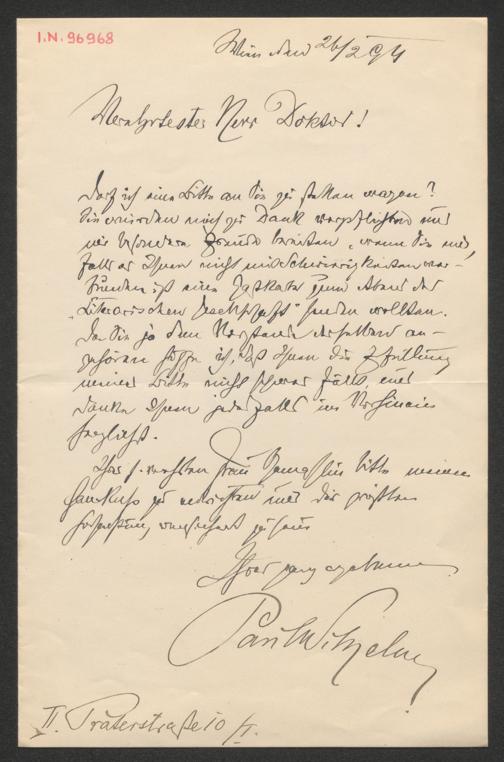 I.N. 96968
Wien den 26/2 94
Verehrtester Herr Doktor!
Darf ich eine Bitte an Sie zu stellen wagen?
Sie würden mich zu Dank verpflichten und
mir besondere Freude bereiten, wenn Sie mir,
falls es Ihnen nicht mit Schwierigkeiten ver-
bunden ist eine Gastkarte zum Abend der
„Literarischen Gesellschaft" senden wollten.
Da Sie ja dem Vorstande derselben an-
gehören hoffe ich, daß Ihnen die Erfüllung
meiner Bitte nicht schwer fällt, und
danke Ihnen jedenfalls im Vorhinein
herzlichst.
Ihrer verehrten Frau Gemahlin bitte meinen
Handkuß zu entrichten und der größten
Hochachtung versichert zu sein
Ihr ganz ergebener
Paul Wilhelm
II. Praterstraße 10 /II.